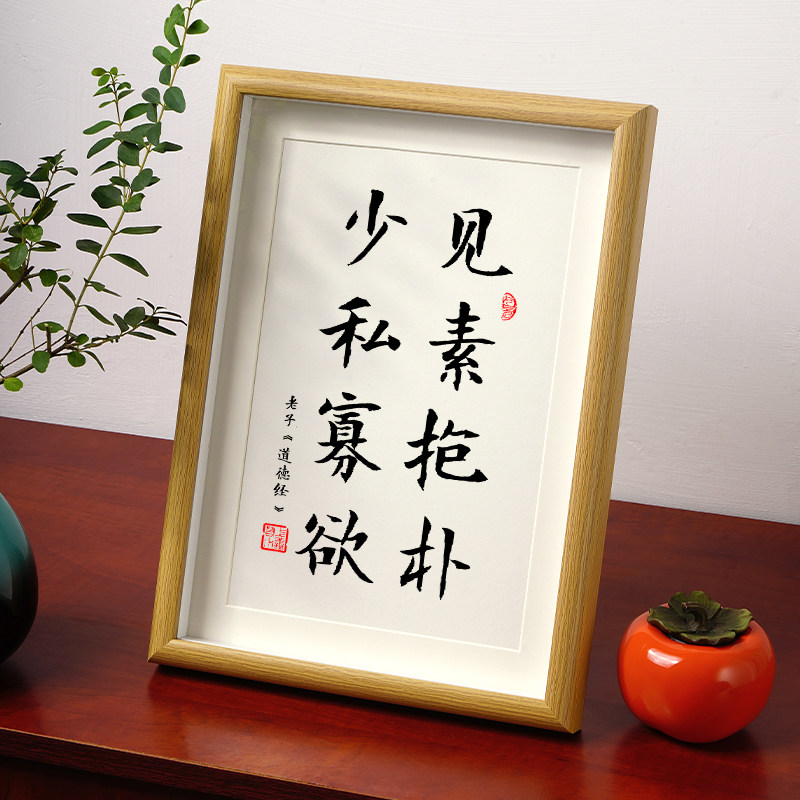 见素抱朴
少私寡欲
老子《道德经》